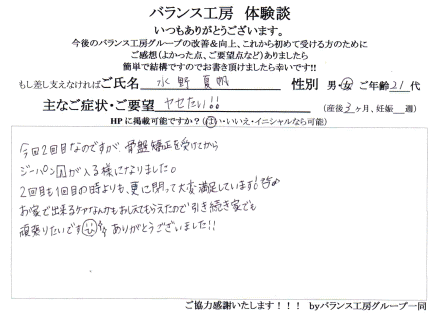 バランス工房 体験談
いつもありがとうございます。
今後のバランス工房グループの改善&向上、これから初めて受ける方のために
ご感想(よかった点、ご要望点など)ありましたら
簡単で結構ですのでお書き頂けましたら幸いです!!
もし差し支えなければご氏名 水野 夏帆 性別 男・女 ご年齢21代
主なご症状・ご要望 ヤセたい!! (産後3ヶ月、妊娠 週)
HPに掲載可能ですか?(はい・いいえ・イニシャルなら可能)
今回2回目なのですが、骨盤矯正を受けてから
ジーパンが入る様になりました。
2回目も1回目の時よりも、更に閉って大変満足しています!
お家で出来るケアなんかもおしえてもらえたので引き続き家でも
頑張りたいです ありがとうございました!!
ご協力感謝いたします!!! byバランス工房グループ一同